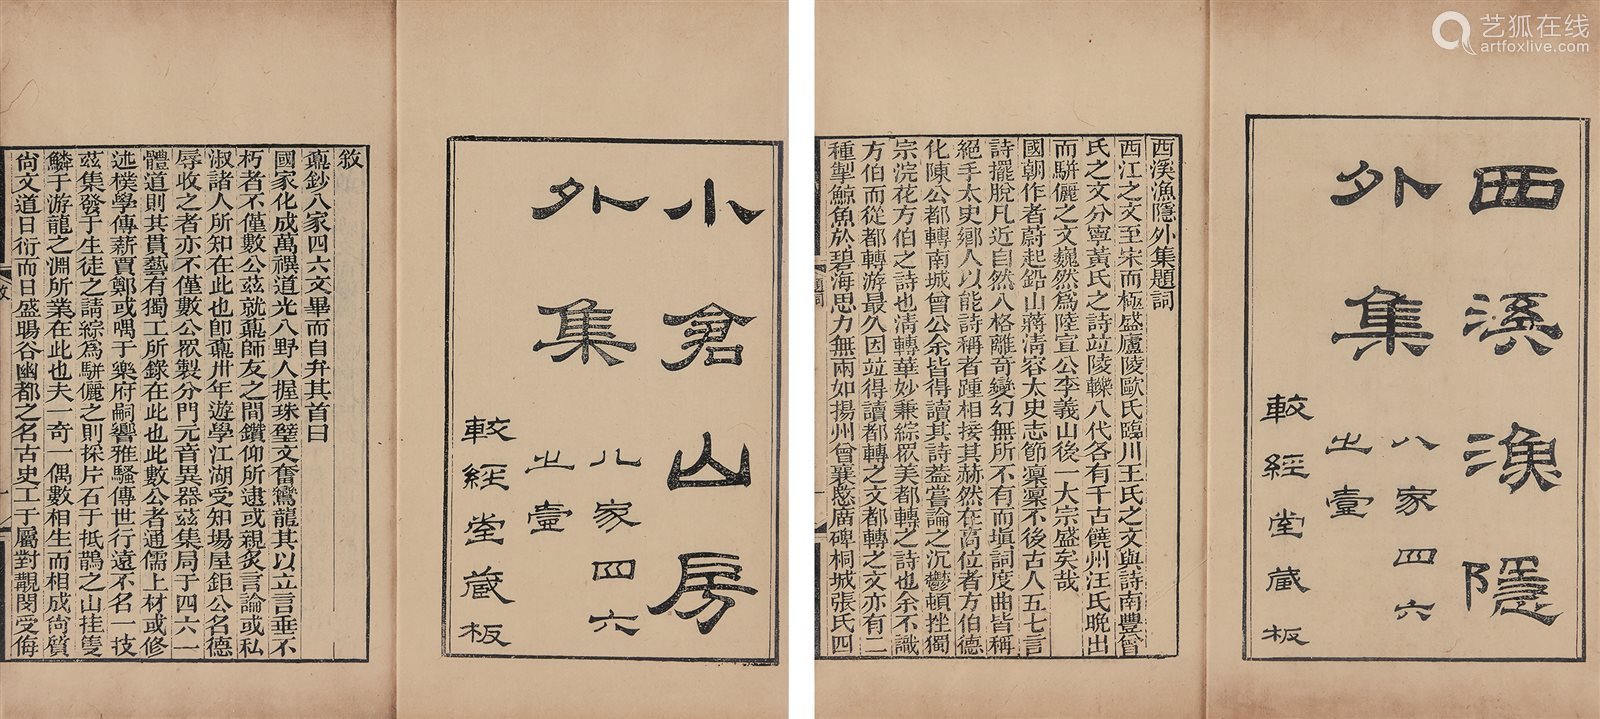 小倉山房
外集
八家四六
之壹
較經堂藏板
敘
鼒鈔八家四六文畢而自弁其首曰
國家化成萬禩道光八野人握珠璧文奮鸞龍其以立言垂不
朽者不僅數公茲就鼒師友之間鑽仰所逮或親炙言論或私
淑諸人所知在此也卽鼒卅年遊學江湖受知場屋鉅公名德
辱收之者亦不僅數公眾製分門元音異器茲集局于四六一
體道則其貫藝有獨工所錄在此也此數公者通儒上材或修
述樸學傳薪賈鄭或喁于樂府嗣響雅騷傳世行遠不名一技
茲集發于生徒之請綜為駢儷之則採片石于抵鵲之山挂隻
鱗于游龍之淵所業在此也夫一奇一偶數相生而相成尙質
尙文道日衍而日盛暘谷幽都之名古史工于屬對覯閔受侮
敘
西溪漁隱
外集
八家四六
之壹
較經堂藏板
西溪漁隱外集題詞
西江之文至宋而極盛廬陵歐氏臨川王氏之文與詩南豐曾
氏之文分寧黃氏之詩竝陵轢八代各有千古饒州汪氏晚出
而駢儷之文巍然為陸宣公李義山後一大宗盛矣哉
國朝作者蔚起鉛山蔣淸容太史志節稟稟不後古人五七言
詩擺脫凡近自然入格離奇變幻無所不有而塡詞度曲皆稱
絕手太史鄉人以能詩稱者踵相接其赫然在高位者方伯德
化陳公都轉南城曾公余皆得讀其詩葢嘗論之沉鬱頓挫獨
宗浣花方伯之詩也淸轉華妙兼綜眾美都轉之詩也余不識
方伯而從都轉游最久因竝得讀都轉之文都轉之文亦有二
種掣鯨魚於碧海思力無兩如揚州曾襄愍廟碑桐城張氏四
題詞
艺狐在线
artfoxlive.com